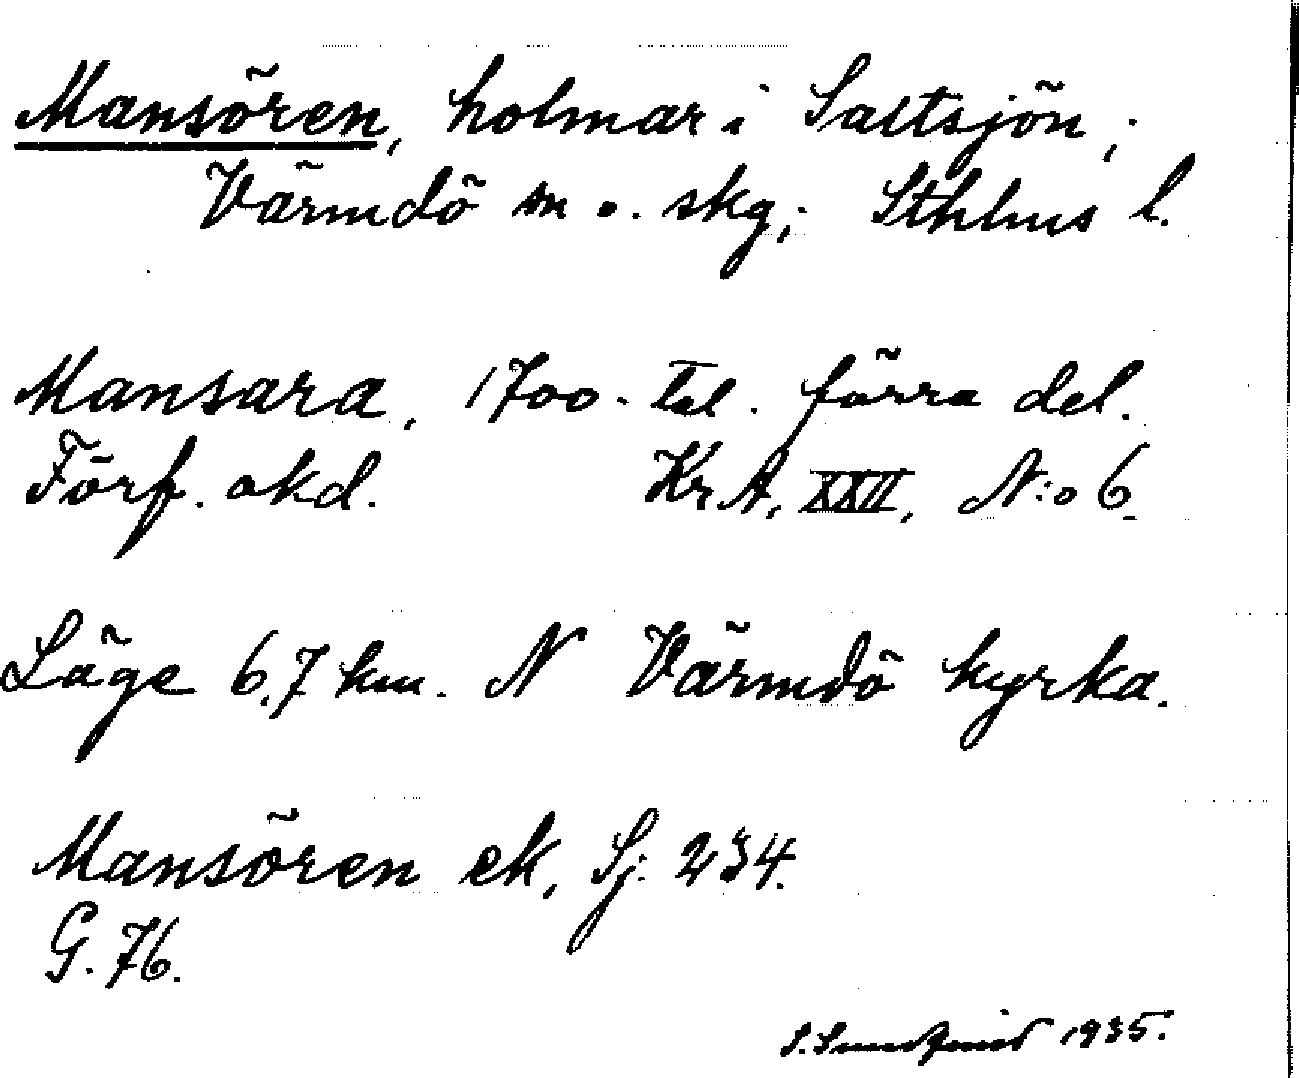 Mansören, holmar i Saltsjön,
Värmdö sn o. skg, Sthlms l.
Mansara, 1700-tal. förra del.
Förf. okd. KrA, XXII, N:o 6.
Läge 6,7 km. N Värmdö kyrka.
Mansören ek, Sj. 234.
G. 76.
S. Sundqvist 1935.